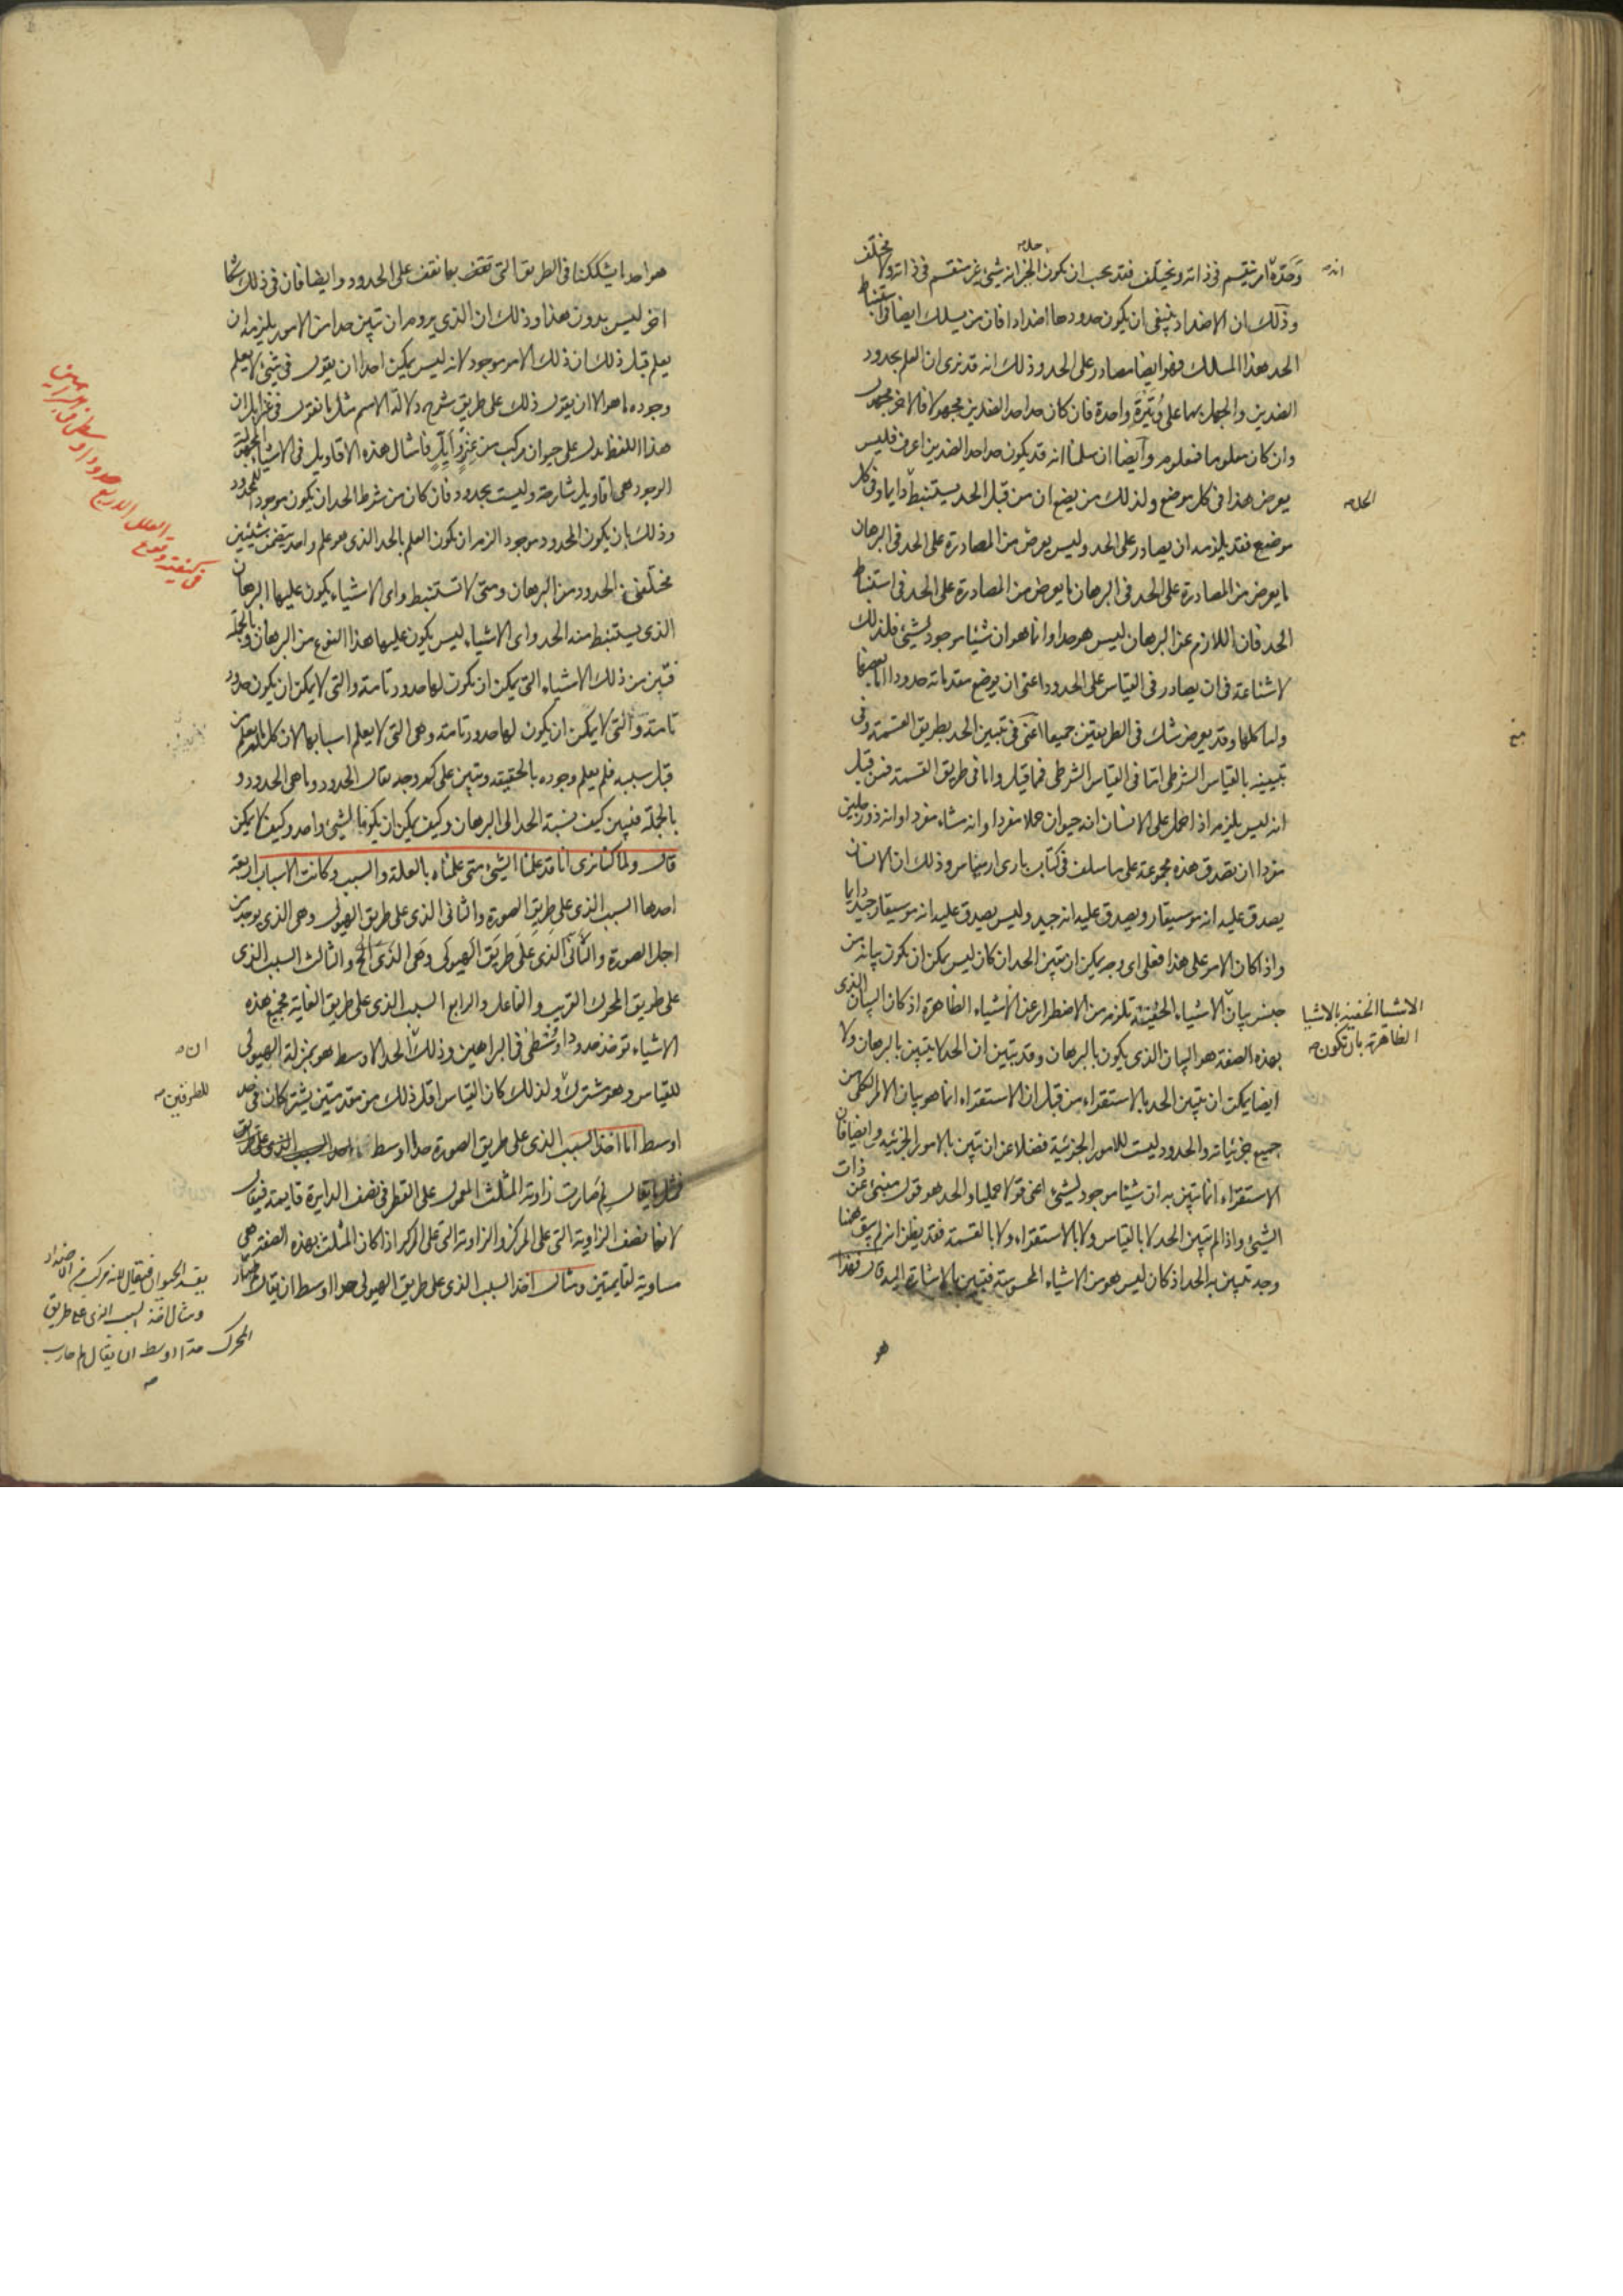 وحده امر ينقسم في ذاته ويختلف فقد يجب ان يكون الخبر انه شيء غير منقسم في ذاته ولا مختلف
وذلك ان الاضداد ينبغي ان يكون حدودها اضدادا فان من يسلك ايضا في استنباط
الحد هذا المسلك فهو ايضا مصادر على الحد وذلك انه قد نرى ان العلم بحدود
الضدين والجهل بهما على وتيرة واحدة فان كان حد احد الضدين مجهولا فالاخر مجهول
وان كان معلوما فمعلوم وايضا ان سلمنا انه قد يكون حد احد الضدين اعرف فليس
يعرض هذا في كل موضع ولذلك من يضع ان من قبل الحد يستنبط دايما وفي كل
موضع فقد يلزمه ان يصادر على الحد وليس يعرض من المصادرة على الحد في البرهان
ما يعرض من المصادرة على الحد في البرهان ما يعرض من المصادرة على الحد في استنباط
الحد فان اللازم عن البرهان ليس هو حدا وانما هو ان شيئا موجود لشيء فلذلك
لا شناعة في ان يصادر في القياس على الحدود اعني ان يوضع مقدماته حدودا اما بعضها
واما كلها وقد يعرض شك في الطريقتين جميعا اعني في تبيين الحد بطريق القسمة وفي
تبيينه بالقياس الشرطي اما في القياس الشرطي فما قيل واما في طريق القسمة فمن قبل
انه ليس يلزم اذا حمل على الانسان انه حيوان حملا مفردا وانه مشاء مفردا وانه ذو رجلين
مفردا ان تصدق هذه مجموعة على ما سلف في كتاب باري ارمينياس وذلك ان الانسان
يصدق عليه انه موسيقار ويصدق عليه انه جيد وليس يصدق عليه انه موسيقار جيد دايما
واذا كان الامر على هذا فعلى اي وجه يمكن ان يتبين الحد ان كان ليس يمكن ان يكون بيانه من
جنس بيان الاشياء الخفية تلزم من الاضطرار عن الاشياء الظاهرة اذ كان البيان الذي
بهذه الصفة هو البيان الذي يكون بالبرهان وقد تبين ان الحد لا يتبين بالبرهان ولا
ايضا يمكن ان يتبين الحد بالاستقراء من قبل ان الاستقراء انما هو بيان الامر الكلي من
جميع جزئياته والحدود ليست للامور الجزئية فضلا عن ان تبين بالامور الجزئية وايضا فان
الاستقراء انما يتبين به ان شيئا موجود لشيء اعني قولا حمليا والحد هو قول منبئ عن ذات
الشيء واذا لم يتبين الحد لا بالقياس ولا بالاستقراء ولا بالقسمة فقد يظن انه لم يبق ههنا
وجه يتبين به الحد اذ كان ليس هو من الاشياء المحسوسة فيتبين بالاشارة اليه قال فهذا
هو
انه
الاشيا الخفية بالاشيا
الظاهرة بان تكون
هو احد ما يشككنا في الطريق التي نقف بها نقف على الحدود وايضا فان في ذلك شكا
اخر ليس بدون هذا وذلك ان الذي يروم ان يتبين حد امر من الامور يلزمه ان
يعلم قبل ذلك ان ذلك الامر موجود لانه ليس يمكن احدا ان يقول في شيء لا يعلم
وجوده ما هو الا ان يقول ذلك على طريق شرح دلالة الاسم مثل ما نقول في غزايل ان
هذا اللفظ يدل على حيوان مركب من عنز وايل فامثال هذه الاقاويل في الاشيا المجهولة
الوجود هي اقاويل شارحة وليست بحدود فان كان من شرط الحد ان يكون موجودا للمحدود
وذلك بان يكون المحدود موجودا لزم ان يكون العلم بالحد الذي هو علم واحد يتضمن شيئين
مختلفين الحدود من البرهان ومتى لا تستنبط واي الاشياء يكون عليها البرهان
الذي يستنبط منه الحد واي الاشياء ليس يكون عليها هذا النوع من البرهان وبالجملة
فتبين من ذلك الاشياء التي يمكن ان يكون لها حدود تامة والتي لا يمكن ان يكون حدود
تامة والتي لا يمكن ان يكون لها حدود تامة وهي التي لا يعلم اسبابها لان كل ما لم يعلم من
قبل سببه فلم يعلم وجوده بالحقيقه ويتبين على كم وجه يقال الحدود وما هي الحدود و
بالجملة فتبين كيف نسبة الحد الى البرهان وكيف يمكن ان يكونا لشيء واحد وكيف لا يمكن
قال ولما كنا نرى انا قد علمنا الشيء متى علمناه بالعلة والسبب وكانت الاسباب اربعة
احدها السبب الذي على طريق الصورة والثاني الذي على طريق الهيولى وهي الذي يوجد من
اجل الصورة والثاني الذي على طريق الهيولى وهي الذي الخ والثالث السبب الذي
على طريق المحرك القريب والفاعل والرابع السبب الذي على طريق الغاية فجميع هذه
الاشياء توخذ حدودا وسطى في البراهين وذلك الحد الاوسط هو بمنزلة الهيولى
للقياس وهو مشترك ولذلك كان القياس اقل ذلك من مقدمتين يشتركان في حد
اوسط اما اخذ السبب الذي على طريق الصورة حدا اوسط
فمثل ما يقال لم صارت زاوية المثلث المعمول على القطر في نصف الدايرة قايمة فيقال
لانها نصف الزاوية التي على المركز والزاوية التي على المركز اذا كان المثلث بهذه الصفة هي
مساوية لقايمتين ومثال اخذ السبب الذي على طريق الهيولى حدا اوسط ان يقال لم صار
في كيفية وقوع العلل الاربع حدودا وسطى في البراهين
ان
للطرفين
يفسد الحيوان فيقال لانه مركب من الاضداد
ومثال اخذ السبب الذي على طريق
المحرك حدا اوسط ان يقال لم حارب